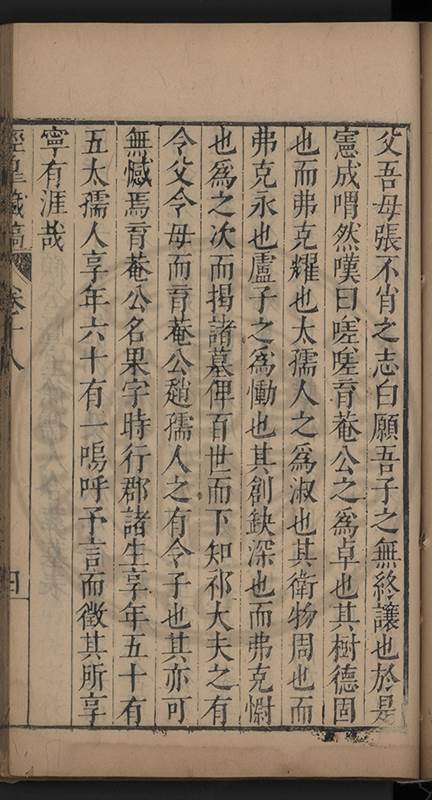 父吾母張不肖之志白願吾子之無終讓也於是
憲成喟然嘆曰嗟嗟育菴公之為卓也其樹德固
也而弗克耀也太孺人之為淑也其衛物周也而
弗克永也盧子之為慟也其創鉅深也而弗克慰
也為之次而揭諸墓俾百世而下知祁大夫之有
令父令母而育菴公趙孺人之有令子也其亦可
無憾焉育菴公名果字時行郡諸生享年五十有
五太孺人享年六十有一嗚呼予言而徵其所享
寧有涯哉
涇臯藏稿 卷十八 四